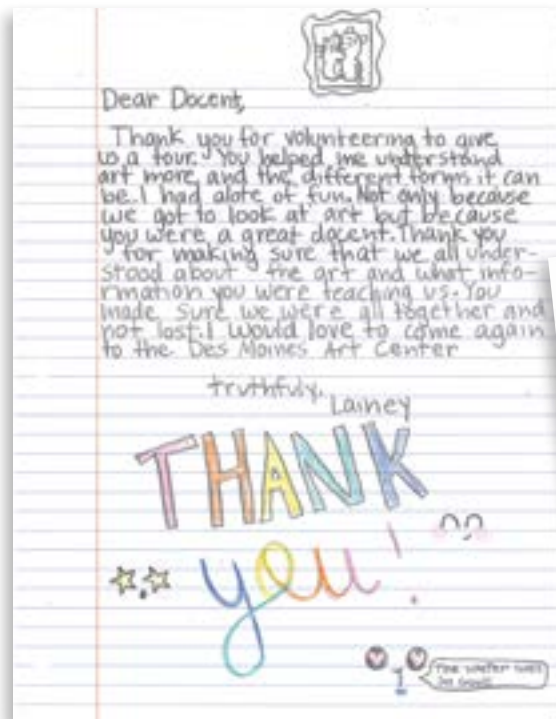 Dear Docent,
Thank you for volunteering to give
us a tour. You helped me understand
art more and the different forms it can
be. I had alote of fun. Not only because
we got to look at art but because
you were a great docent. Thank you
for making sure that we all under-
stood about the art and what info-
rmation you were teaching us. You
made sure we were all together and
not lost. I would love to come again
to the Des Moines Art Center
truthfuly,
Lainey
THANK
you!
The water was
so good!